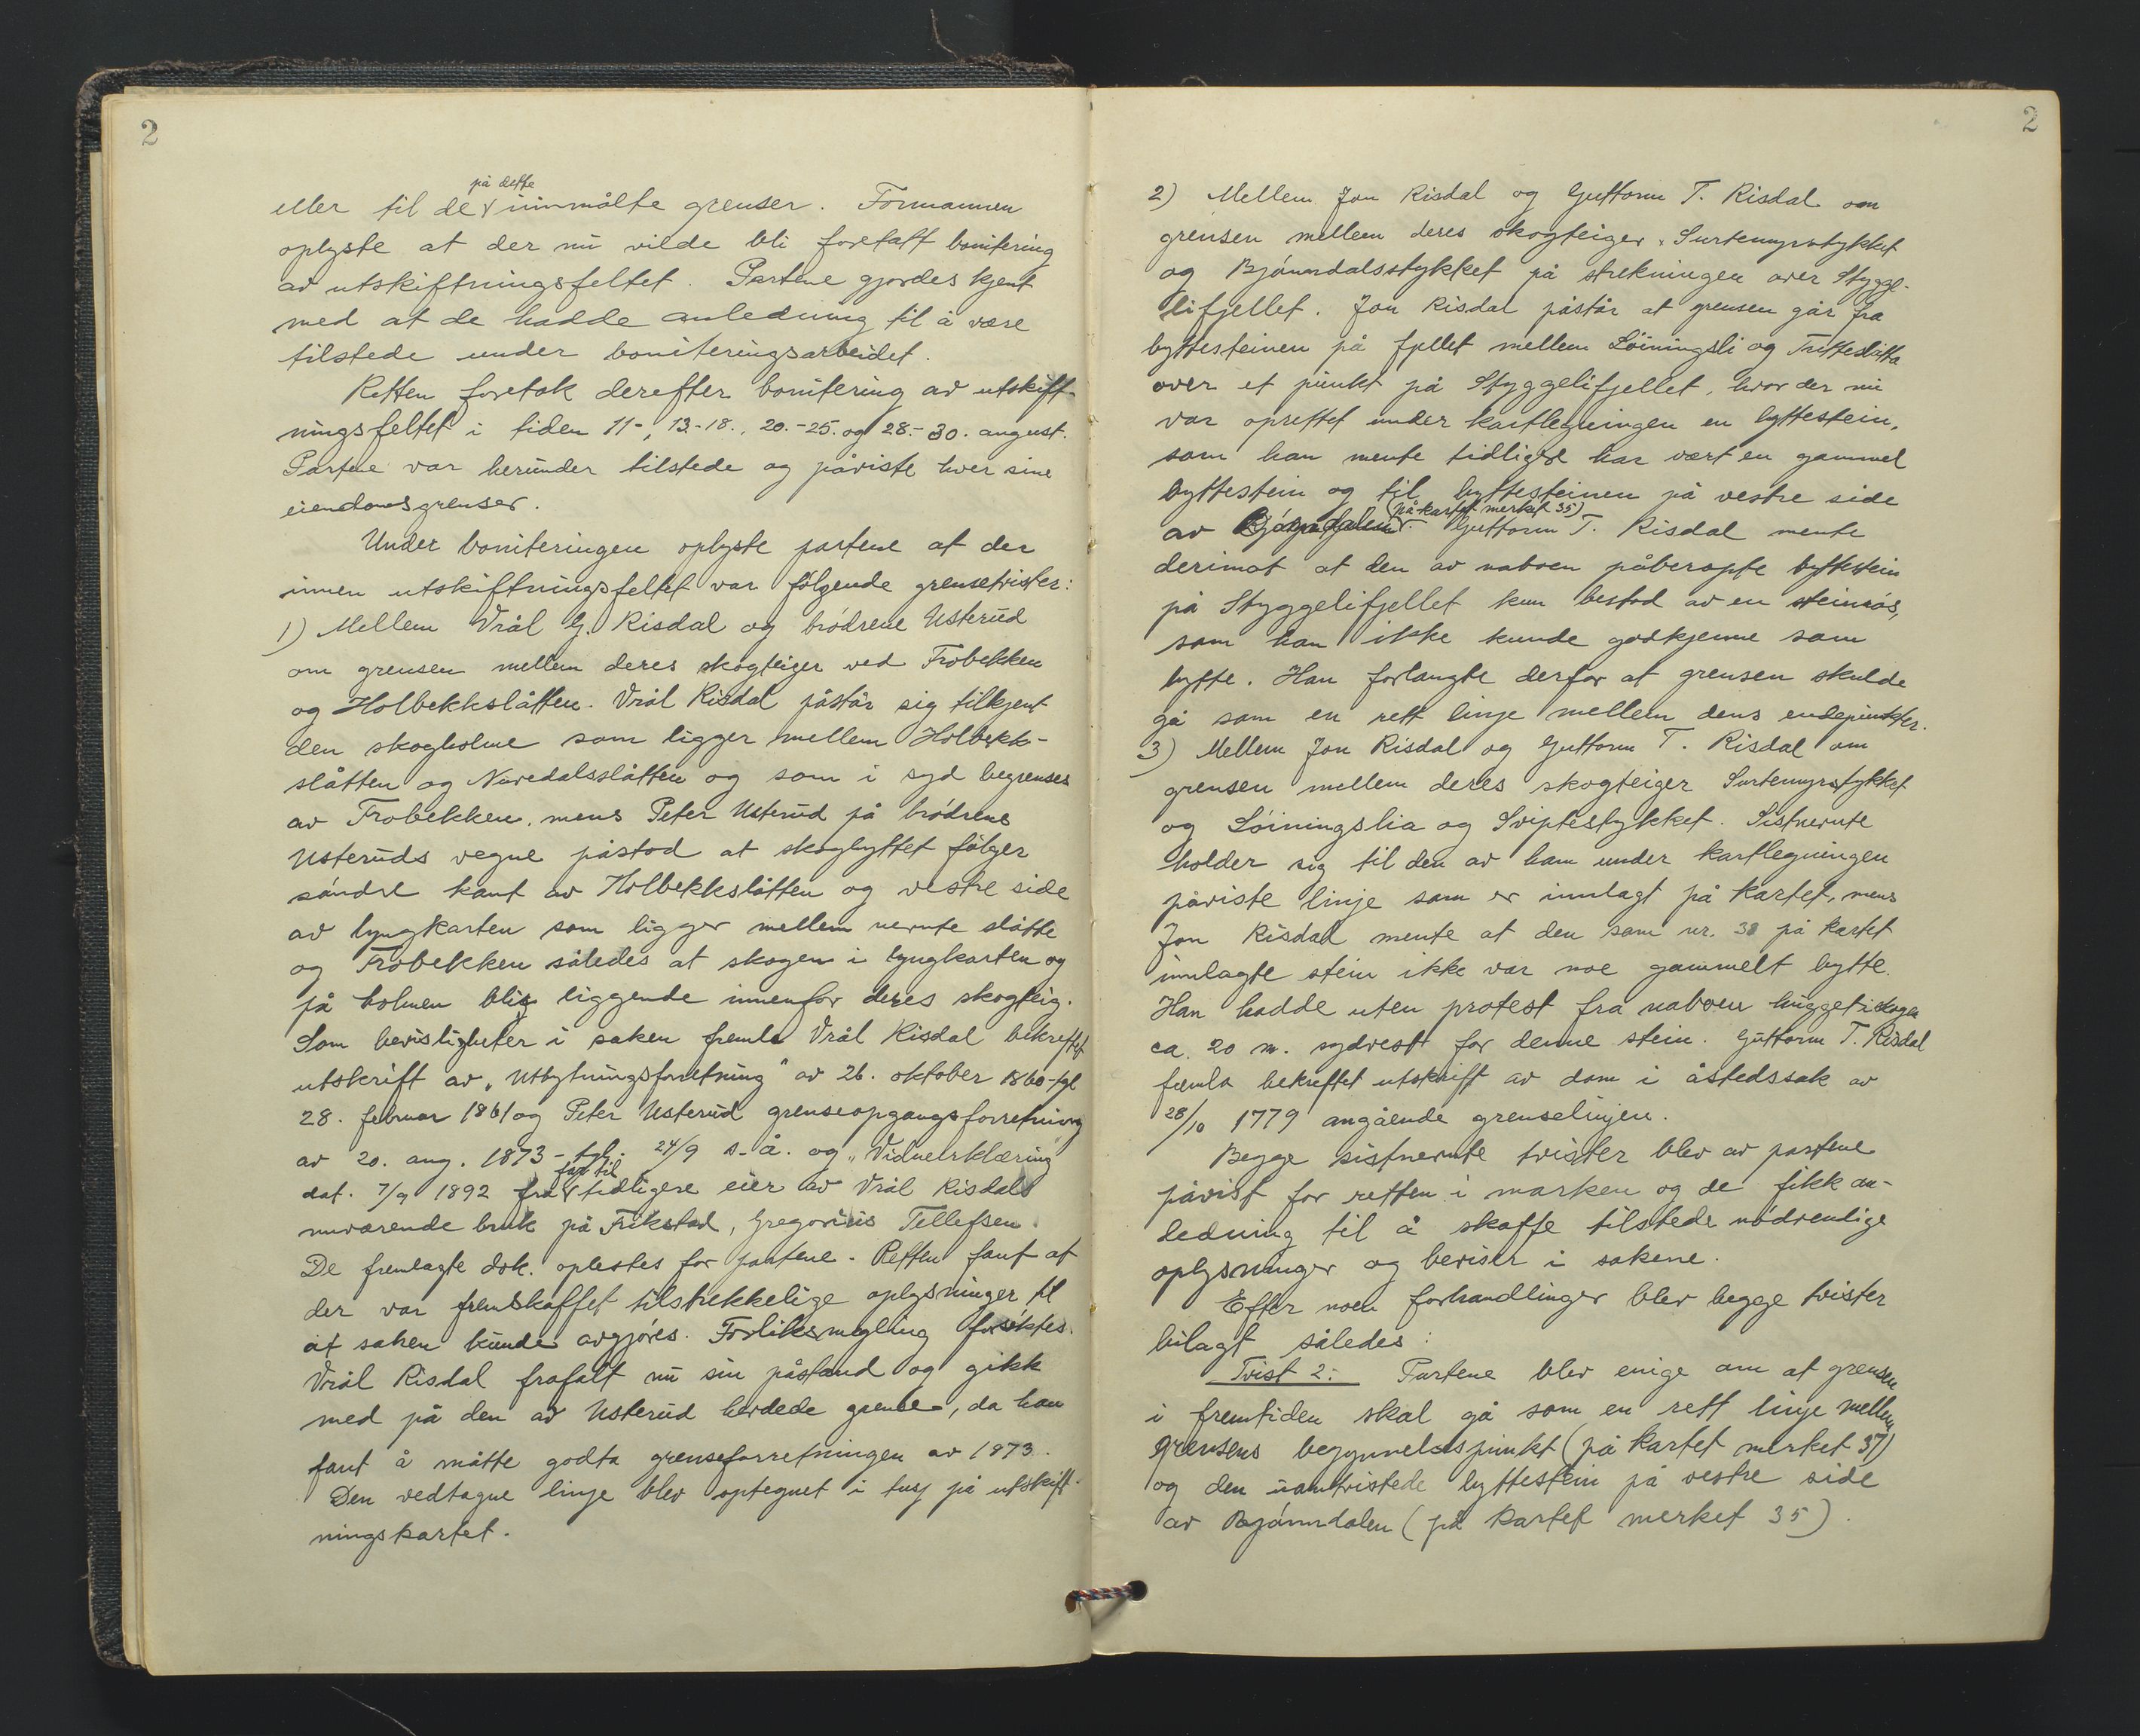 2
på dette
eller til de innmålte grenser. Formannen
oplyste at der nu vilde bli foretatt bonitering
av utskiftningsfeltet. Partene gjordes kjent
med at de hadde anledning til å være
tilstede under boniteringsarbeidet.
Retten foretok derefter bonitering av utskift-
ningsfeltet i tiden 11-, 13.-18., 20.-25. og 28.-30. august.
Partene var herunder tilstede og påviste hver sine
eiendomsgrenser.
Under boniteringen oplyste partene at der
innen utskiftningsfeltet var følgende grensetvister:
1) Mellem Vrål G. Risdal og brødrene Usterud
om grensen mellem deres skogteiger ved Frobekken
og Holbekkslåtten. Vrål Risdal påstår sig tilkjent
den skogholme som ligger mellem Holbekk-
slåtten og Navedalsslåtten og som i syd begrenses
av Frobekken, mens Peter Usterud på brødrene
Usteruds vegne påstod at skogbyttet følger
søndre kant av Holbekkslåtten og vestre side
av lyngkarten som ligger mellem nevnte slåtte
og Frobekken således at skogen i lyngkarten og
på holmen blir liggende innenfor deres skogteig.
Som bevisligheter i saken fremla Vrål Risdal bekreftet
utskrift av "Utbytningsforretning" av 26. oktober 1860 - tgl.
28. februar 1861 og Peter Usterud grenseopgangsforretning
av 20. aug. 1873 - tgl. 24/9 s.å. og "Vidneerklæring"
far til
dat. 7/9 1892 fra tidligere eier av Vrål Risdals
nuværende bruk på Frikstad, Gregorius Tellefsen.
De fremlagte dok. oplestes for partene. Retten fant at
der var fremskaffet tilstrekkelige oplysninger til
at saken kunde avgjøres. Forliksmegling forsøktes.
Vrål Risdal frafalt nu sin påstand og gikk
med på den av Usterud hevdede grense, da han
fant å måtte godta grenseforretningen av 1873.
Den vedtagne linje blev optegnet i tusj på utskift-
ningskartet.
2
2) Mellem Jon Risdal og Guttorm T. Risdal om
grensen mellem deres skogteiger, Surtemyrstykket
og Bjønndalsstykket på strekningen over Stygge-
lifjellet. Jon Risdal påstår at grensen går fra
byttesteinen på fjellet mellem Løiningsli og
over et punkt på Styggelifjellet, hvor der nu
var oprettet under kartlegningen en byttestein,
som han mente tidligere har vært en gammel
byttestein og til byttesteinen på vestre side
(på kartet merket 35)
av Bjønndalen. Guttorm T. Risdal mente
derimot at den av naboen påberopte byttestein
på Styggelifjellet kun bestod av en steinrøs,
som han ikke kunde godkjenne som
bytte. Han forlangte derfor at grensen skulde
gå som en rett linje mellem dens endepunkter.
3) Mellem Jon Risdal og Guttorm T. Risdal om
grensen mellem deres skogteiger Surtemyrstykket
og Løiningslia og Sviptestykket. Sistnevnte
holder sig til den av ham under kartlegningen
påviste linje som er innlagt på kartet, mens
Jon Risdal mente at den som nr. 38 på kartet
innlagte stein ikke var noe gammelt bytte.
Han hadde uten protest fra naboen hugget i skogen
ca. 20 m. sydvest for denne stein. Guttorm T. Risdal
fremla bekreftet utskrift av dom i åstedssak av
28/10 1779 angående grenselinjen.
Begge sistnevnte tvister blev av partene
påvist for retten i marken og de fikk an-
ledning til å skaffe tilstede nødvendige
oplysninger og beviser i sakene.
Efter noen forhandlinger blev begge tvister
bilagt således:
Tvist 2: Partene blev enige om at grensen
i fremtiden skal gå som en rett linje mellem
grensens begynnelsespunkt (på kartet merket 37)
og den uomtvistede byttestein på vestre side
av Bjønndalen (på kartet merket 35).